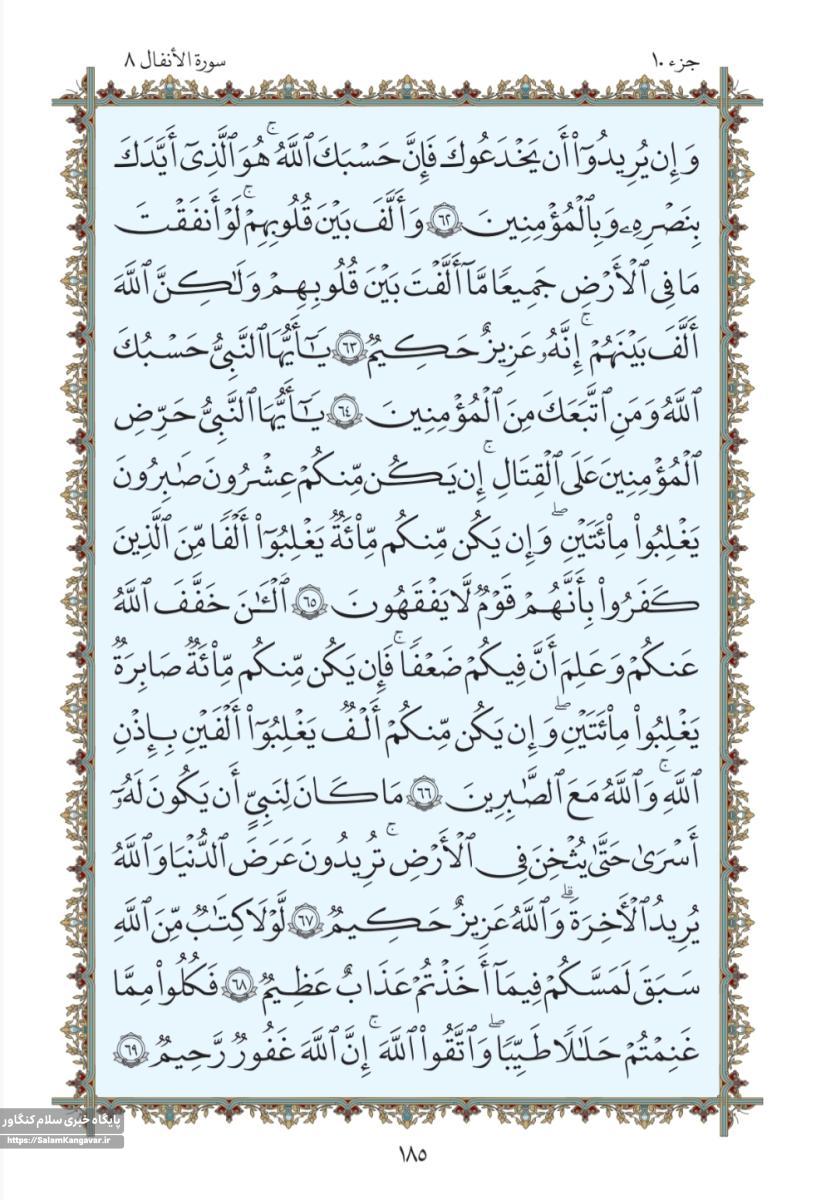 جزء ۱۰
سورة الأنفال ۸
وَإِن يُرِيدُوٓا۟ أَن يَخْدَعُوكَ فَإِنَّ حَسْبَكَ ٱللَّهُ ۚ هُوَ ٱلَّذِىٓ أَيَّدَكَ
بِنَصْرِهِۦ وَبِٱلْمُؤْمِنِينَ ٦٢ وَأَلَّفَ بَيْنَ قُلُوبِهِمْ ۚ لَوْ أَنفَقْتَ
مَا فِى ٱلْأَرْضِ جَمِيعًا مَّآ أَلَّفْتَ بَيْنَ قُلُوبِهِمْ وَلَـٰكِنَّ ٱللَّهَ
أَلَّفَ بَيْنَهُمْ ۚ إِنَّهُۥ عَزِيزٌ حَكِيمٌ ٦٣ يَـٰٓأَيُّهَا ٱلنَّبِىُّ حَسْبُكَ
ٱللَّهُ وَمَنِ ٱتَّبَعَكَ مِنَ ٱلْمُؤْمِنِينَ ٦٤ يَـٰٓأَيُّهَا ٱلنَّبِىُّ حَرِّضِ
ٱلْمُؤْمِنِينَ عَلَى ٱلْقِتَالِ ۚ إِن يَكُن مِّنكُمْ عِشْرُونَ صَـٰبِرُونَ
يَغْلِبُوا۟ مِا۟ئَتَيْنِ ۖ وَإِن يَكُن مِّنكُم مِّا۟ئَةٌ يَغْلِبُوٓا۟ أَلْفًا مِّنَ ٱلَّذِينَ
كَفَرُوا۟ بِأَنَّهُمْ قَوْمٌ لَّا يَفْقَهُونَ ٦٥ ٱلْـَٔـٰنَ خَفَّفَ ٱللَّهُ
عَنكُمْ وَعَلِمَ أَنَّ فِيكُمْ ضَعْفًا ۚ فَإِن يَكُن مِّنكُم مِّا۟ئَةٌ صَابِرَةٌ
يَغْلِبُوا۟ مِا۟ئَتَيْنِ ۖ وَإِن يَكُن مِّنكُمْ أَلْفٌ يَغْلِبُوٓا۟ أَلْفَيْنِ بِإِذْنِ
ٱللَّهِ ۗ وَٱللَّهُ مَعَ ٱلصَّـٰبِرِينَ ٦٦ مَا كَانَ لِنَبِىٍّ أَن يَكُونَ لَهُۥٓ
أَسْرَىٰ حَتَّىٰ يُثْخِنَ فِى ٱلْأَرْضِ ۚ تُرِيدُونَ عَرَضَ ٱلدُّنْيَا وَٱللَّهُ
يُرِيدُ ٱلْـَٔاخِرَةَ ۗ وَٱللَّهُ عَزِيزٌ حَكِيمٌ ٦٧ لَّوْلَا كِتَـٰبٌ مِّنَ ٱللَّهِ
سَبَقَ لَمَسَّكُمْ فِيمَآ أَخَذْتُمْ عَذَابٌ عَظِيمٌ ٦٨ فَكُلُوا۟ مِمَّا
غَنِمْتُمْ حَلَـٰلًا طَيِّبًا ۖ وَٱتَّقُوا۟ ٱللَّهَ ۚ إِنَّ ٱللَّهَ غَفُورٌ رَّحِيمٌ ٦٩
پایگاه خبری سلام کنگاور
https://SalamKangavar.ir
۱۸۵